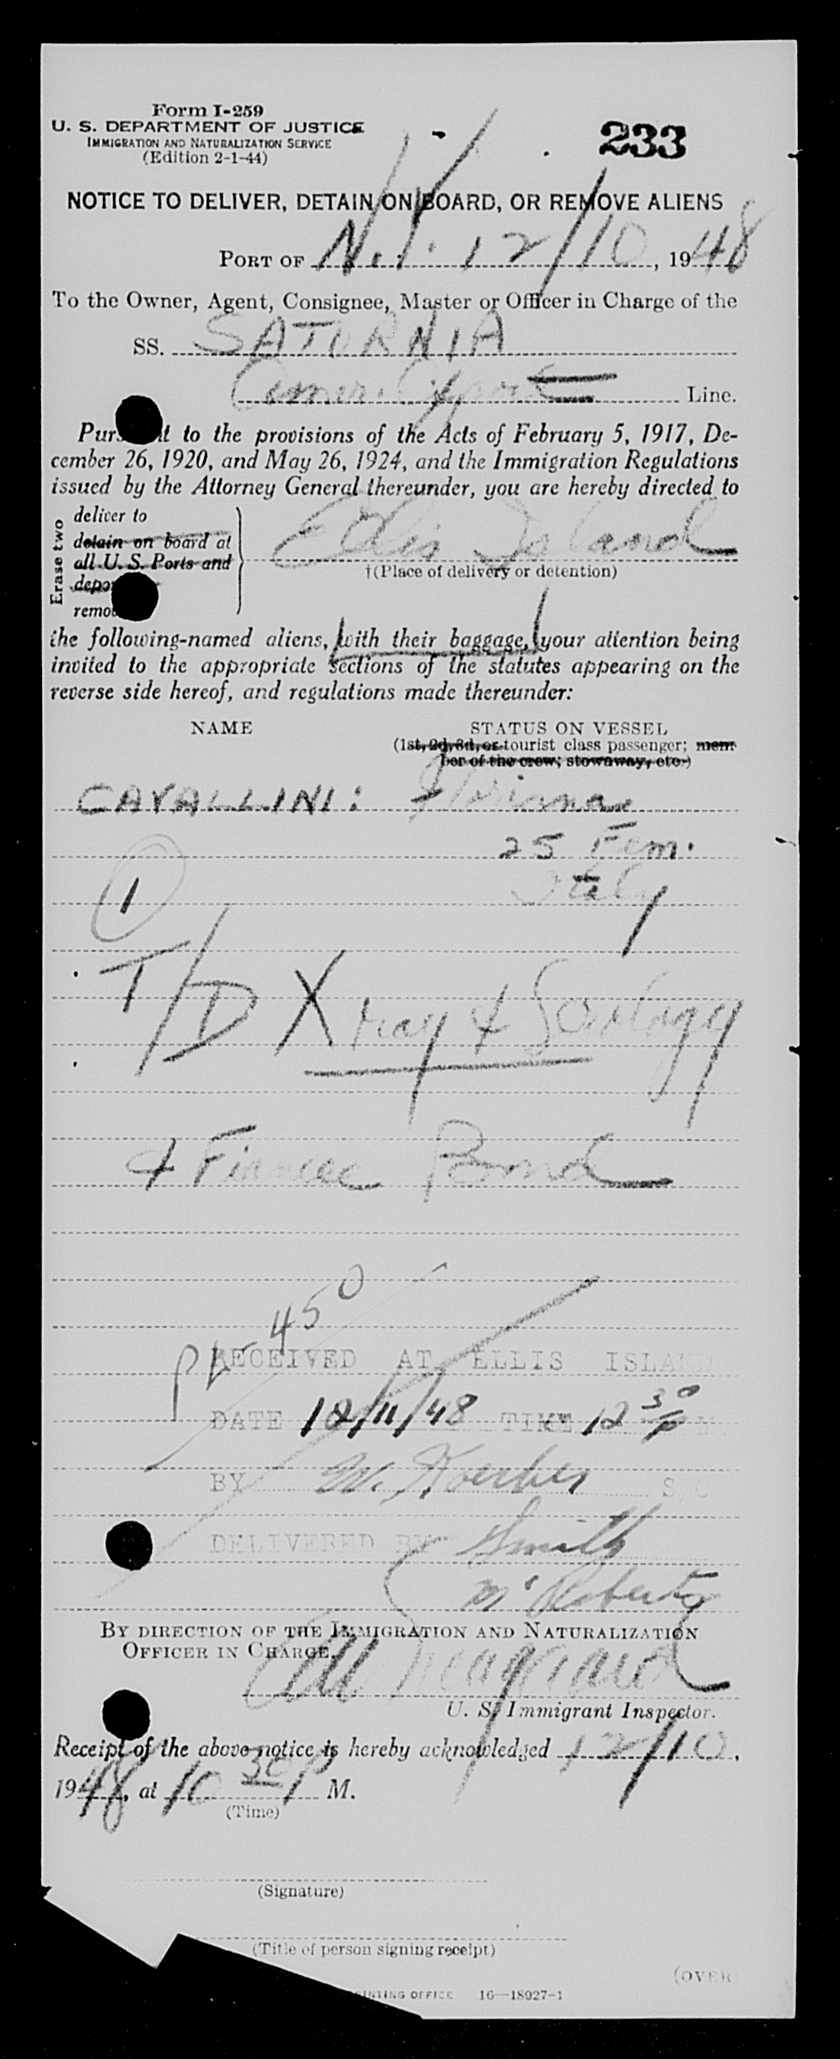 Form I-259
U. S. DEPARTMENT OF JUSTICE
IMMIGRATION AND NATURALIZATION SERVICE
(Edition 2-1-44)
233
NOTICE TO DELIVER, DETAIN ON BOARD, OR REMOVE ALIENS
PORT OF N.Y. 12/10, 1948
To the Owner, Agent, Consignee, Master or Officer in Charge of the
SS. SATURNIA
Amer. Export Line.
Pursuant to the provisions of the Acts of February 5, 1917, De-
cember 26, 1920, and May 26, 1924, and the Immigration Regulations
issued by the Attorney General thereunder, you are hereby directed to
Erase two
deliver to
detain on board at
all U. S. Ports and
depo
remo
Ellis Island
†(Place of delivery or detention)
the following-named aliens, with their baggage, your attention being
invited to the appropriate sections of the statutes appearing on the
reverse side hereof, and regulations made thereunder:
NAME STATUS ON VESSEL
(1st, 2d, 3d, or tourist class passenger; mem-
ber of the crew; stowaway, etc.)
CAVALLINI:
25 Fem.
Italy
1
T/D X ray & Serology
& Fiancee Bond
450
RECEIVED AT ELLIS ISLAND
DATE 12/11/48 TIME 12 30 P M
BY W. Koerber S/O
DELIVERED BY Smith
McRoberts
BY DIRECTION OF THE IMMIGRATION AND NATURALIZATION
OFFICER IN CHARGE.
U. S. Immigrant Inspector.
Receipt of the above notice is hereby acknowledged 12/10,
1948, at 10 30 P M.
(Time)
(Signature)
(Title of person signing receipt)
(OVER)
PRINTING OFFICE 16—18927-1